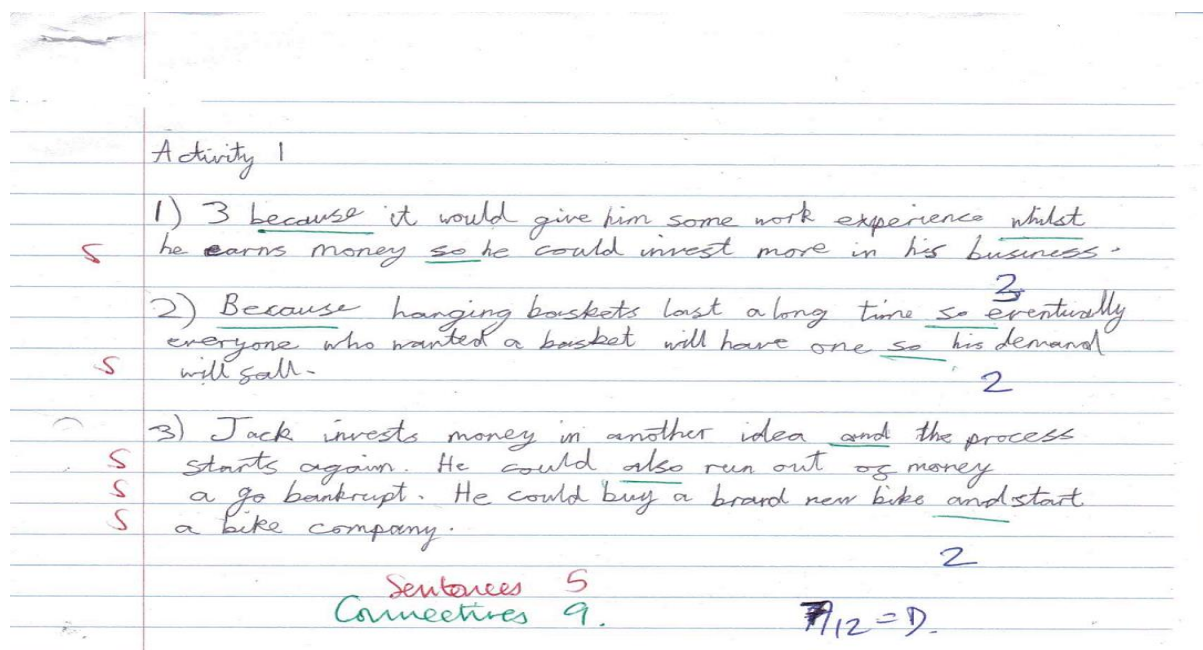 Activity 1
1) 3 because it would give him some work experience whilst
S he earns money so he could invest more in his business.
3
2) Because hanging baskets last a long time so eventually
everyone who wanted a basket will have one so his demand
S will fall.
2
3) Jack invests money in another idea and the process
S starts again. He could also run out of money
S a go bankrupt. He could buy a brand new bike and start
S a bike company.
2
Sentences 5
Connectives 9.
7/12 = D.